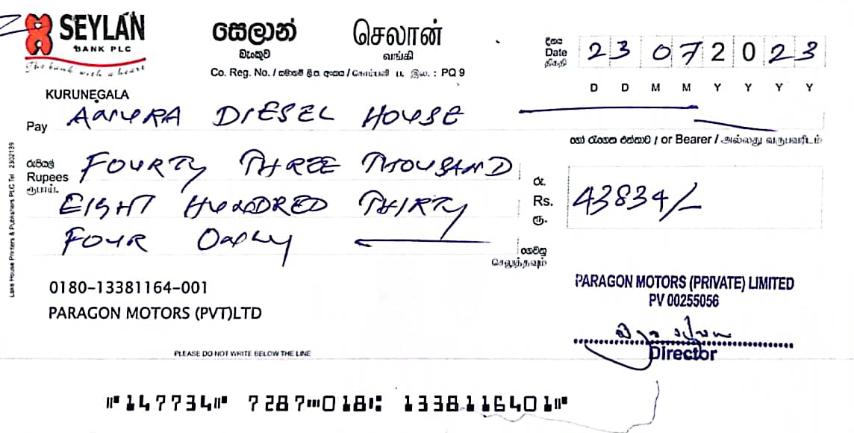 SEYLAN
BANK PLC
The bank with a heart
සෙලාන් செலான்
බැංකුව வங்கி
Co. Reg. No. / සමාගම් ලි.ප. අංකය / கொம்பனி ப. இல. : PQ 9
දිනය
Date 23 07 2023
திகதி
D D M M Y Y Y Y
KURUNEGALA
Pay ANURA DIESEL HOUSE
හෝ රැගෙන එන්නාට / or Bearer / அல்லது வருபவரிடம்
රුපියල්
Rupees FOURTY THREE THOUSAND
ரூபாய்.
EIGHT HUNDRED THIRTY
FOUR ONLY
ගෙවනු
செலுத்தவும்
රු.
Rs. 43834/-
ரூ.
Lake House Printers & Publishers PLC Tel 2302139
0180-13381164-001
PARAGON MOTORS (PVT)LTD
PARAGON MOTORS (PRIVATE) LIMITED
PV 00255056
Director
PLEASE DO NOT WRITE BELOW THE LINE
⑈147734⑈ 7287⑉018⑆ 1338116401⑈